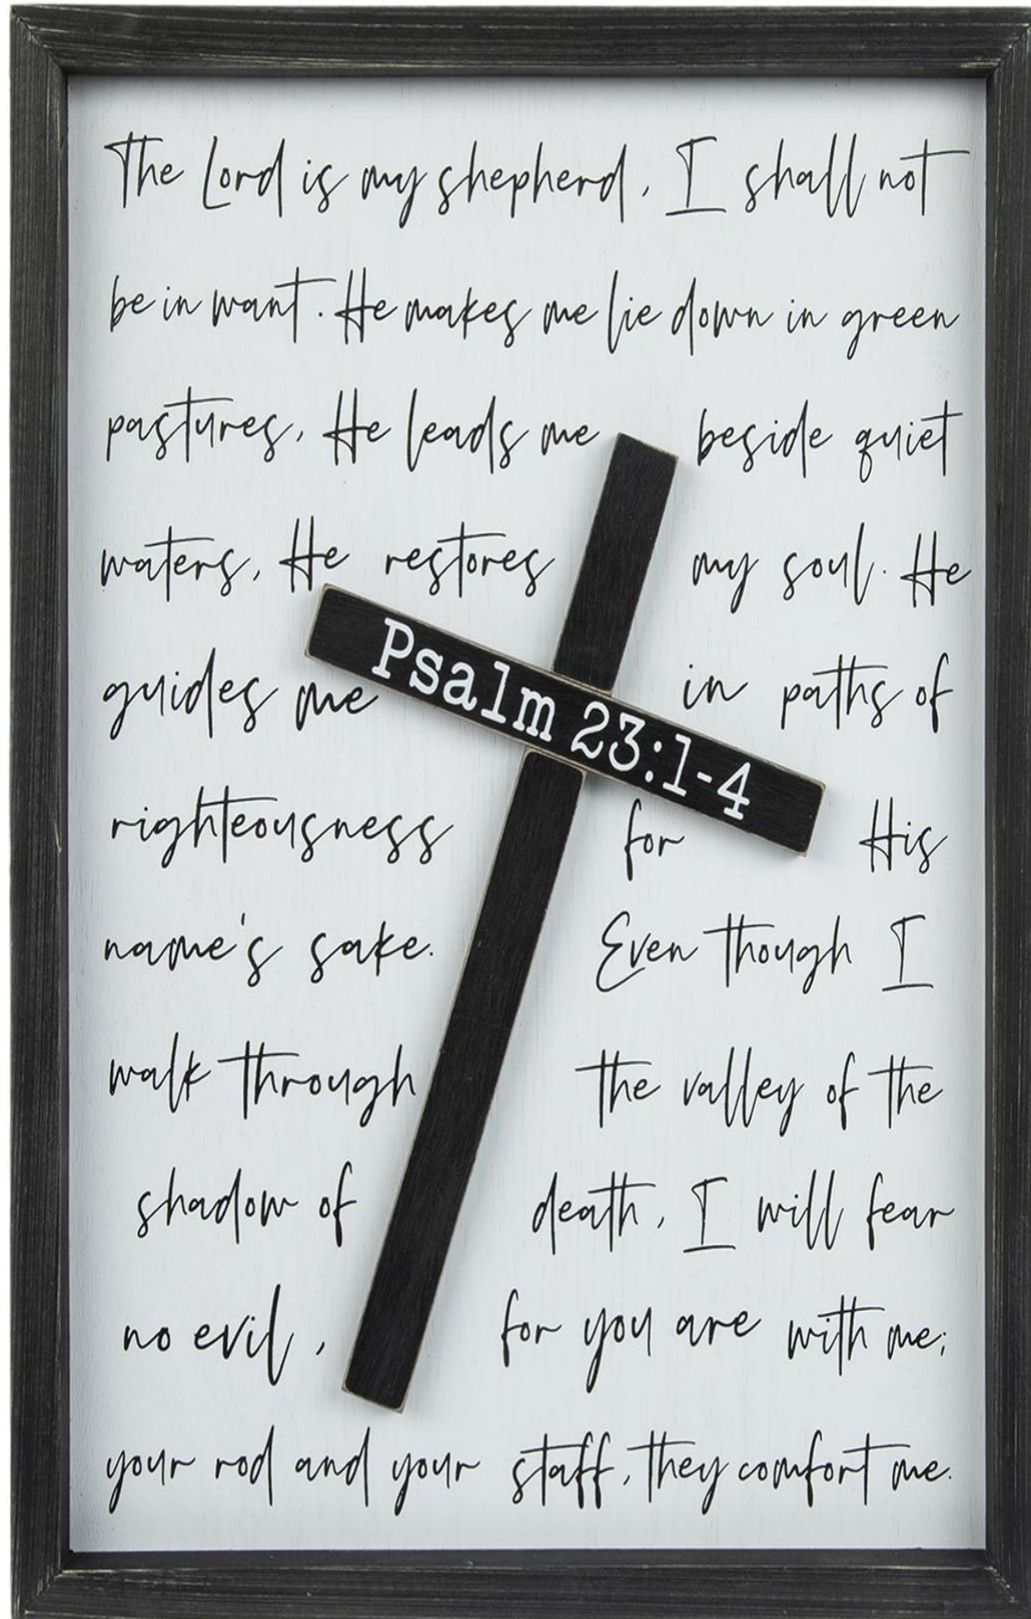 The Lord is my shepherd, I shall not
be in want. He makes me lie down in green
pastures, He leads me beside quiet
waters, He restores my soul. He
guides me in paths of
Psalm 23:1-4
righteousness for His
name's sake. Even though I
walk through the valley of the
shadow of death, I will fear
no evil, for you are with me;
your rod and your staff, they comfort me.